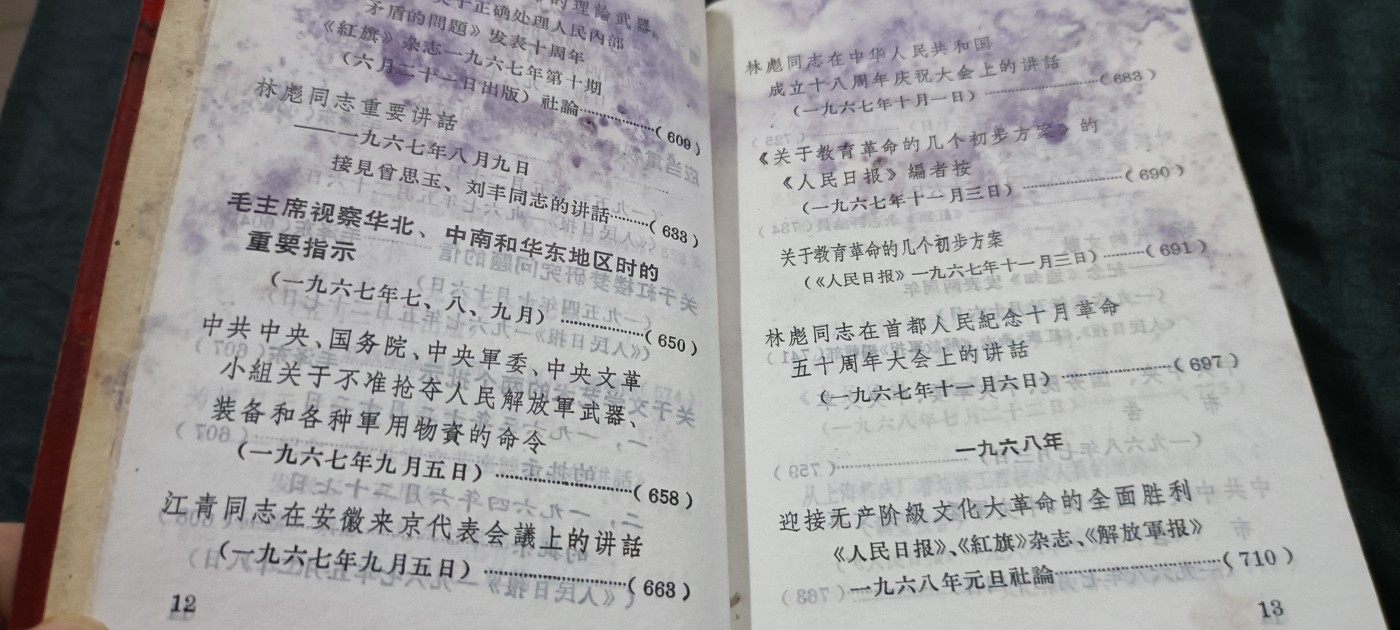 的理論武器
关于正确处理人民內部
矛盾的問題》发表十周年
《紅旗》杂志一九六七年第十期
（六月二十一日出版）社論………（609）
林彪同志重要讲話
——一九六七年八月九日
接見曾思玉、刘丰同志的讲話………（633）
毛主席视察华北、中南和华东地区时的
重要指示
（一九六七年七、八、九月）………（650）
中共中央、国务院、中央軍委、中央文革
小組关于不准抢夺人民解放軍武器、
装备和各种軍用物資的命令
（一九六七年九月五日）………（658）
江青同志在安徽来京代表会議上的讲話
（一九六七年九月五日）………（663）
12
林彪同志在中华人民共和国
成立十八周年庆祝大会上的讲話
（一九六七年十月一日）………（683）
《关于教育革命的几个初步方案》的
《人民日报》編者按
（一九六七年十一月三日）………（690）
关于教育革命的几个初步方案
（《人民日报》一九六七年十一月三日）………（691）
林彪同志在首都人民紀念十月革命
五十周年大会上的讲話
（一九六七年十一月六日）………（697）
一九六八年
迎接无产阶級文化大革命的全面胜利
《人民日报》、《紅旗》杂志、《解放軍报》
一九六八年元旦社論………（710）
13